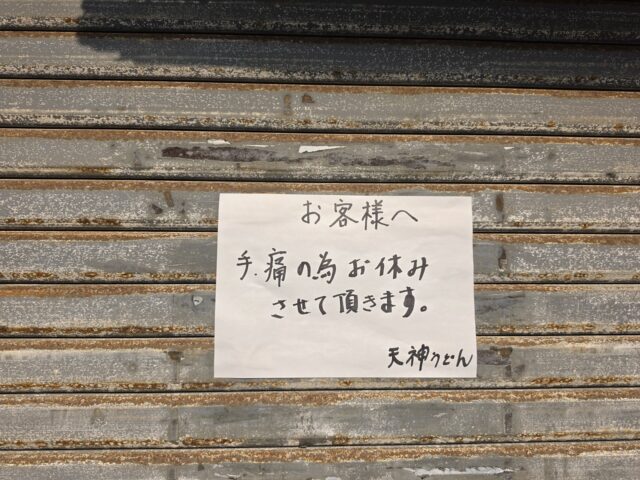 お客様へ
手.痛の為お休み
させて頂きます。
天神うどん